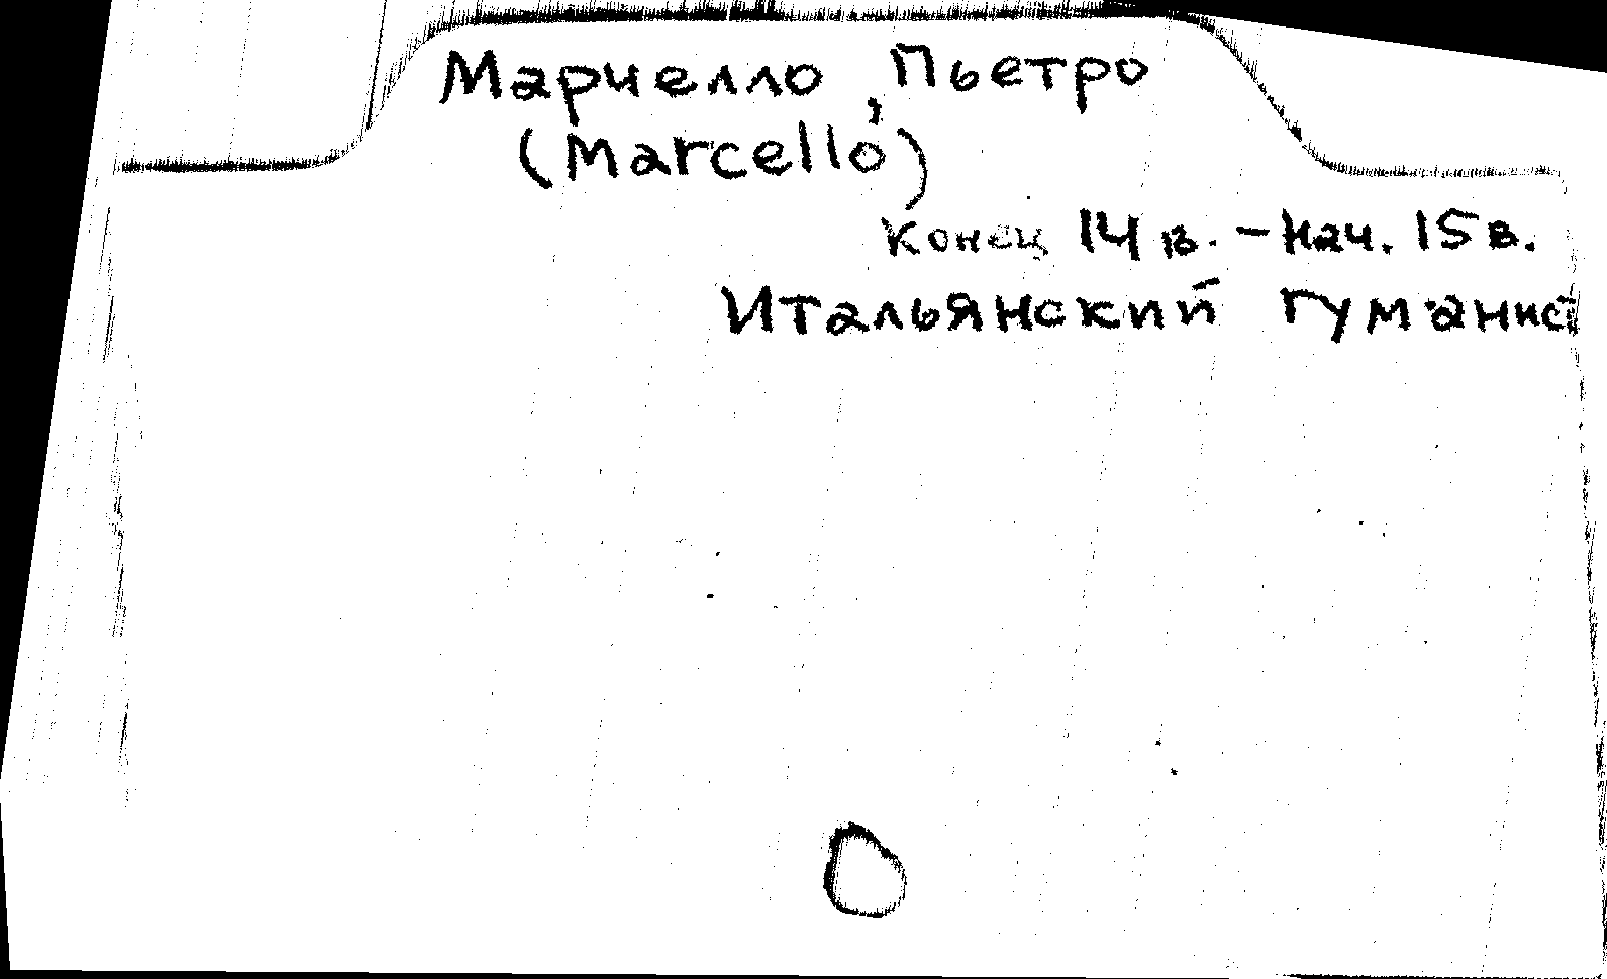 Марчелло, Пьетро
(Marcello)
Конец 14 в. - нач. 15 в.
Итальянский гуманист